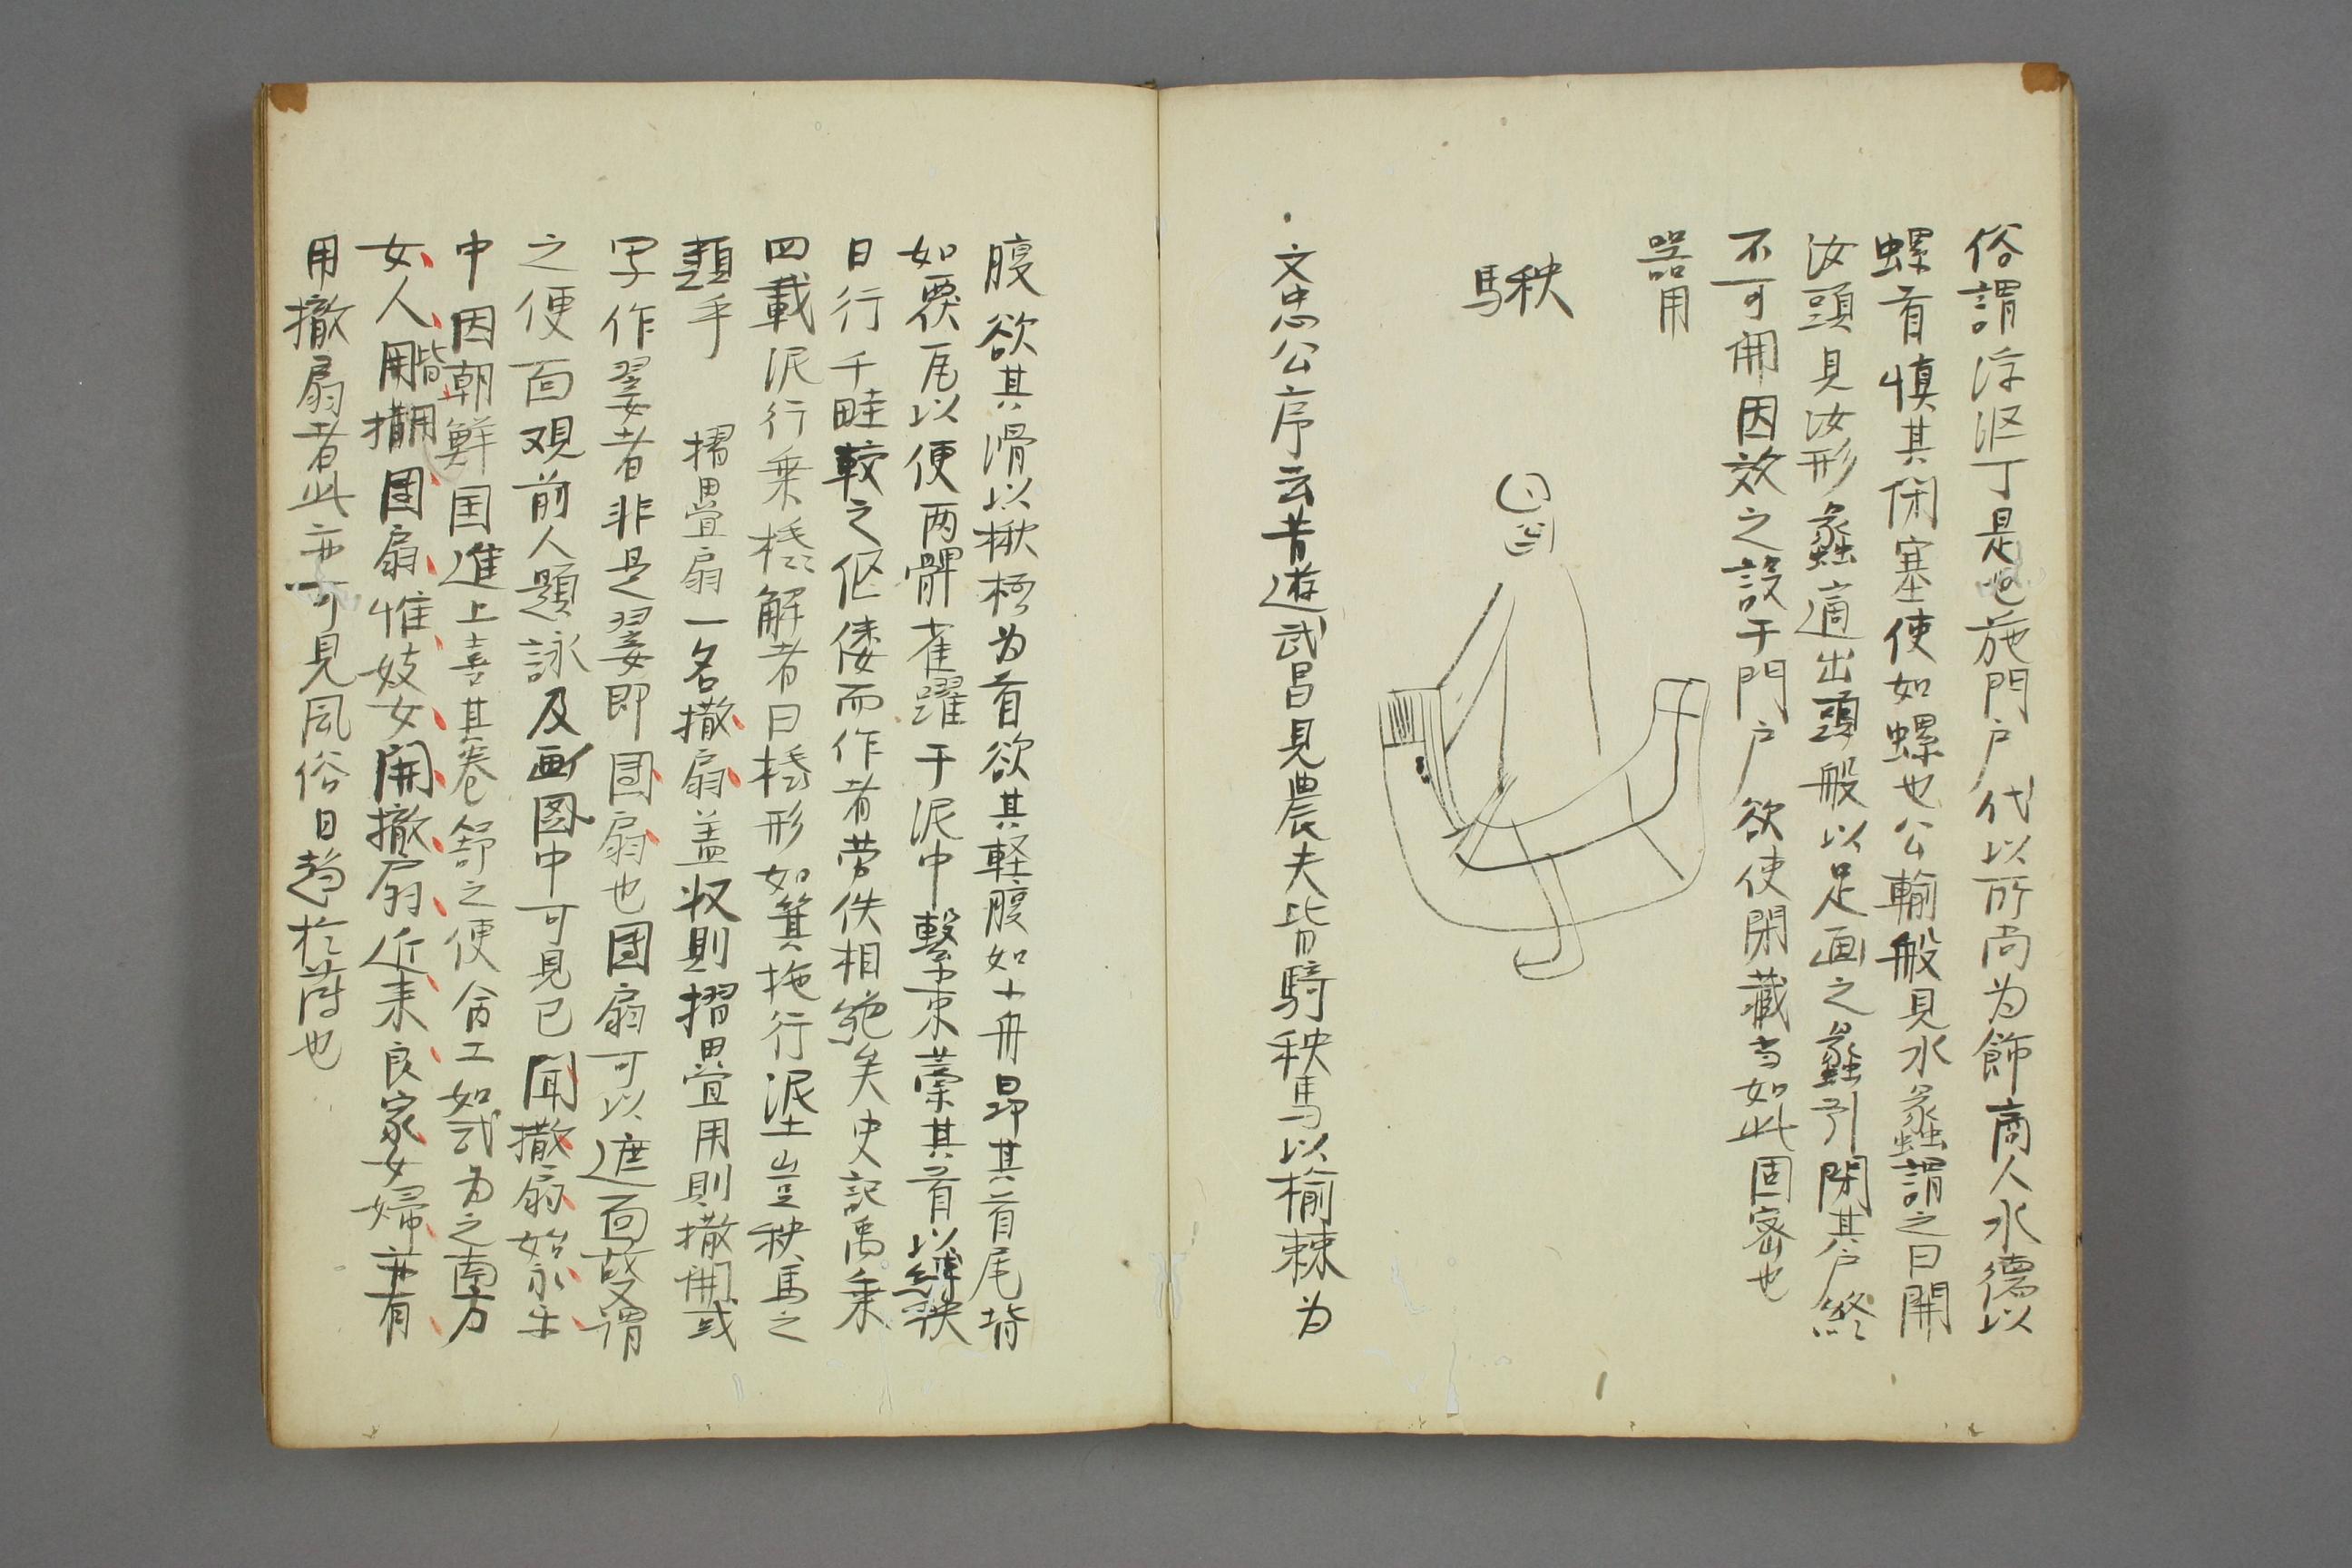 俗謂浮漚丁是也施門戶代以所尚为飾商人水德以
螺首慎其闭塞使如螺也公輸般見水蠡謂之曰開
汝頭見汝形蠡適出頭般以足画之蠡引閉其戶終
不可開因效之設于門戶欲使閉藏当如此固密也
器用
秧馬
文忠公序云昔遊武昌見農夫皆騎秧馬以榆棘为
腹欲其滑以楸梧为首欲其軽腹如小舟昂其首尾背
如覆瓦以便两髀雀躍于泥中繫束藁其首以縳秧
日行千畦較之伛僂而作者劳佚相絶矣史記禹乗
四載泥行乗橇解者曰橇形如箕拖行泥上豈秧馬之
類乎　摺疊扇一名撒扇盖収則摺疊用則撒開或
字作翣者非是翣即團扇也團扇可以遮面故又謂
之便面观前人題詠及画图中可見已聞撒扇始永乐
中因朝鮮国進上喜其卷舒之便命工如式为之南方
女人皆用團扇惟妓女用撒扇近来良家女婦亦有
用撒扇者此亦可見風俗日趋於薄也